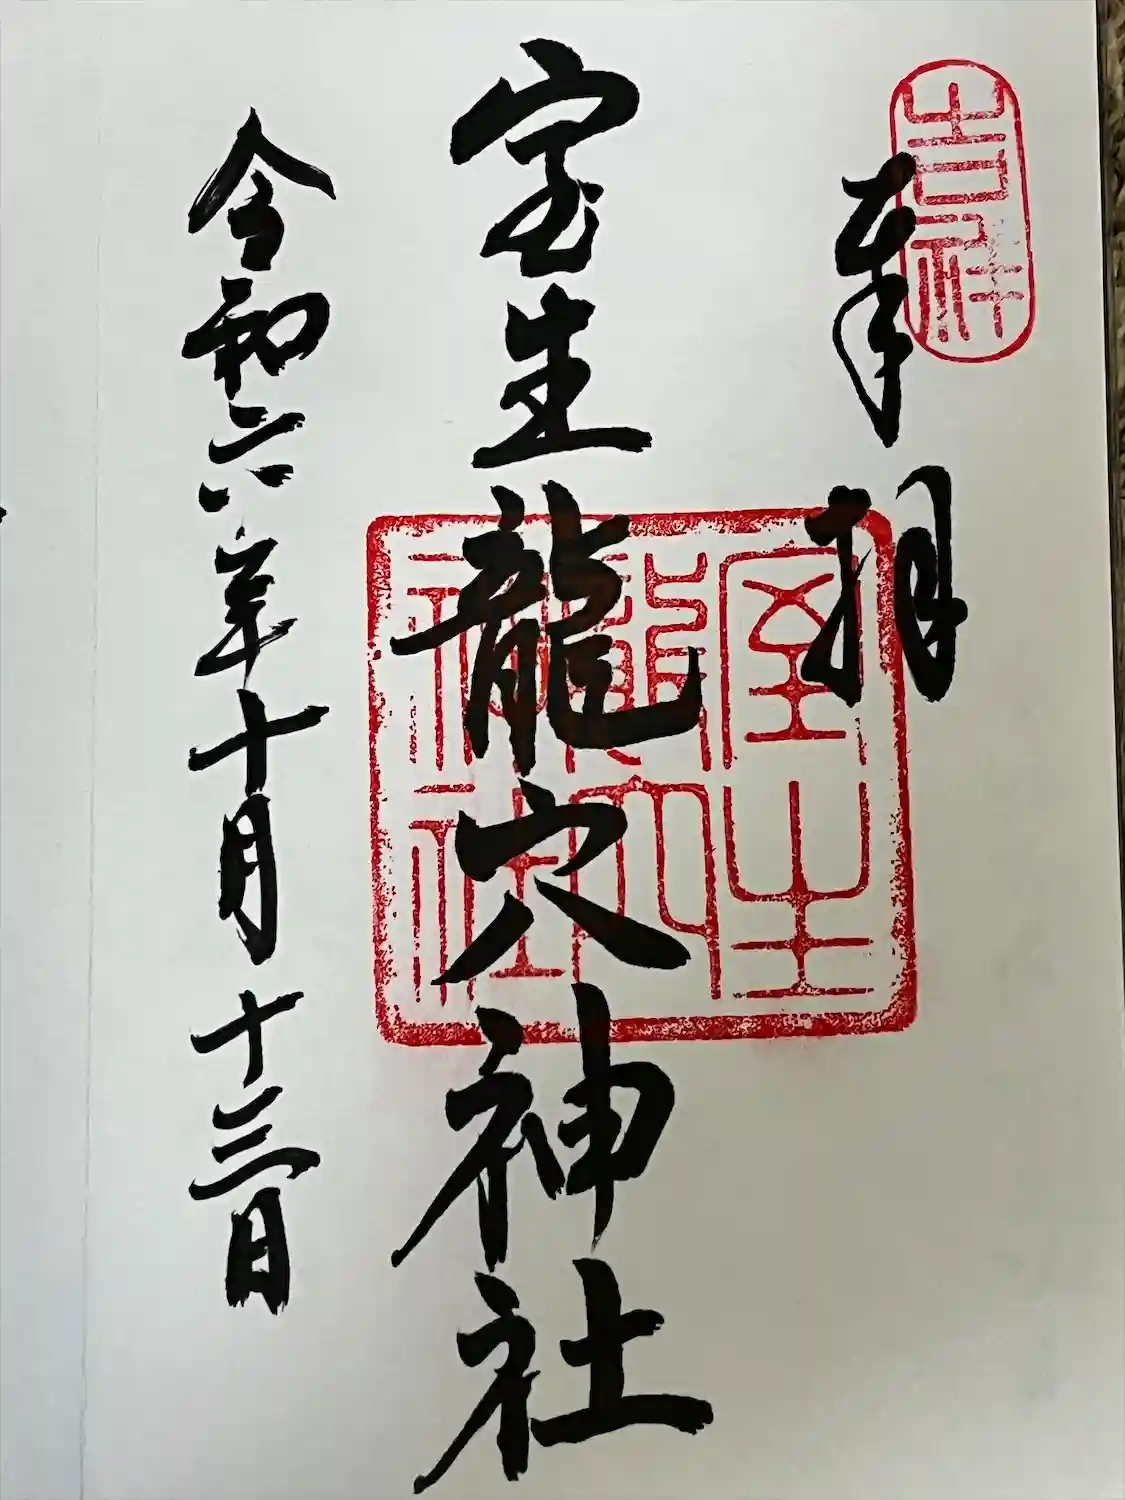 吉祥
奉拝
室生龍穴神社
室生
龍穴
神社
令和六年十月十三日